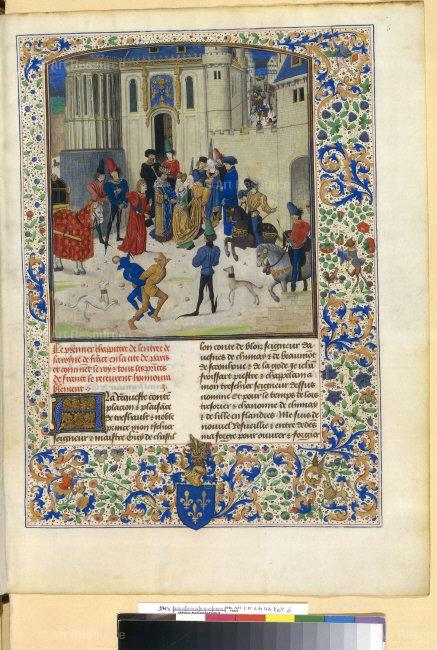 Le premier chapitre de lentree de
la royne de france en la cite de paris
et comme le roy et tous les princes
de france se
A la requeste contem
placion et plaisance
de treshault et noble
prince mon treschier
seigneur et maistre Guis de chastil
lon conte de blois seigneur da
uesnes de chimay et de beaumont
de et de la gode Je iehan
froissart prestre et chappellain a
mon treschier seigneur dessus
nomme et pour le temps de lors
tresorier et chanonne de chimay
et de lille en flandres Me suis de
nouuel resueillie et entre dedens
ma forge pour ouurer et forgier
Art Resource